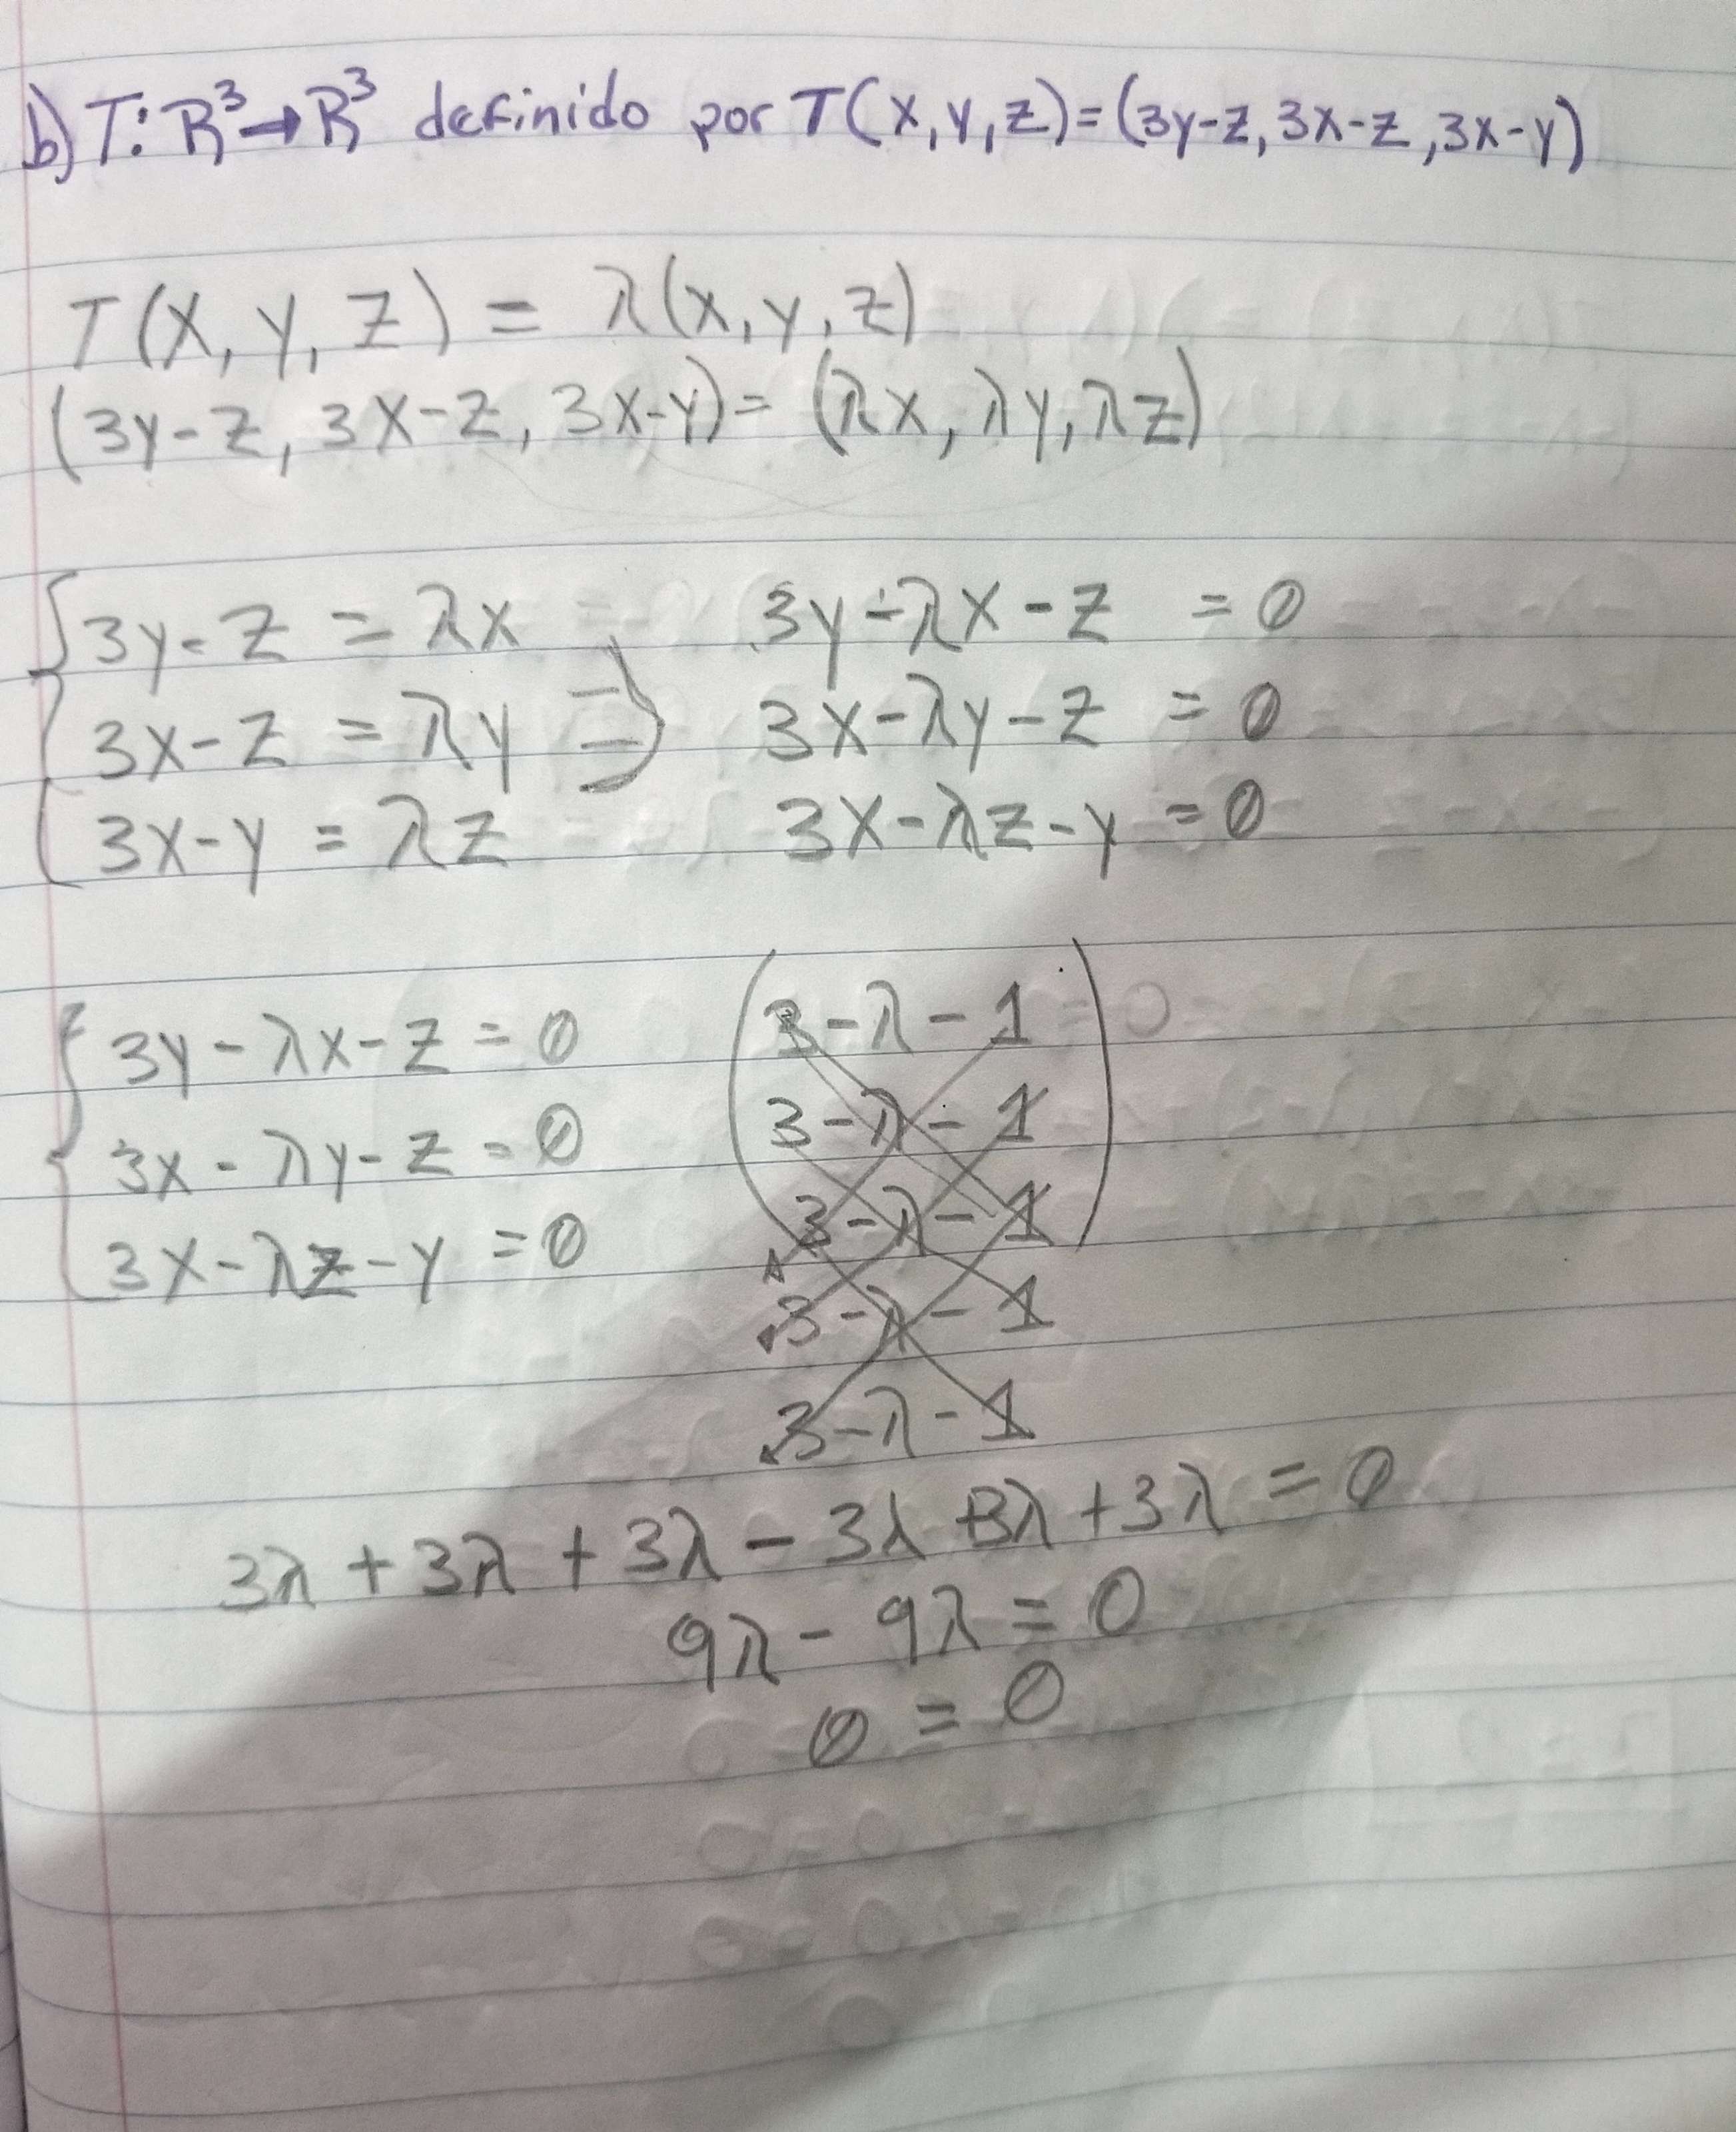 b) T: R³→R³ definido por T(x,y,z)=(3y-z,3x-z,3x-y)
T(x,y,z) = λ(x,y,z)
(3y-z, 3x-z, 3x-y)= (λx, λy, λz)
{3y-z = λx ⇒ 3y-λx-z = 0
3x-z = λy 3x-λy-z = 0
3x-y = λz 3x-λz-y = 0
{3y-λx-z = 0 (3-λ-1)
3x-λy-z = 0 3-λ-1
3x-λz-y = 0 3-λ-1
3-λ-1
3-λ-1
3λ+3λ+3λ-3λ+3λ+3λ = 0
9λ-9λ = 0
0 = 0